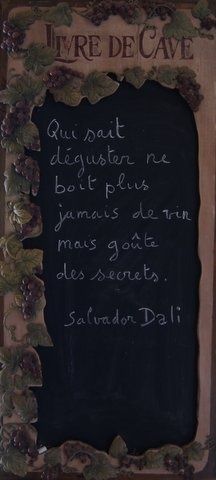 LIVRE DE CAVE
Qui sait
déguster ne
boit plus
jamais de vin
mais goûte
des secrets.
Salvador Dali